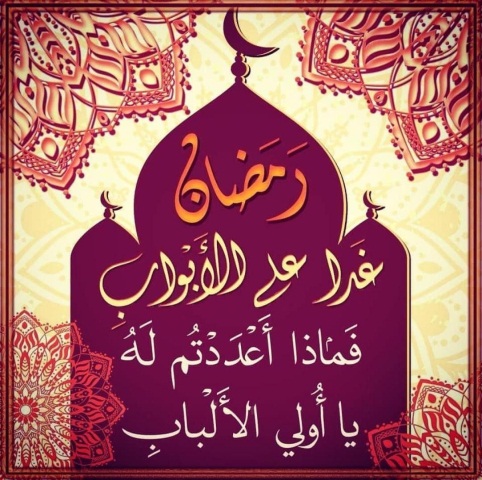 رَمَضان
غَدا على الأَبْوابِ
فَماذا أَعْدَدْتُم لَهُ
يا أُولي الأَلْبابِ